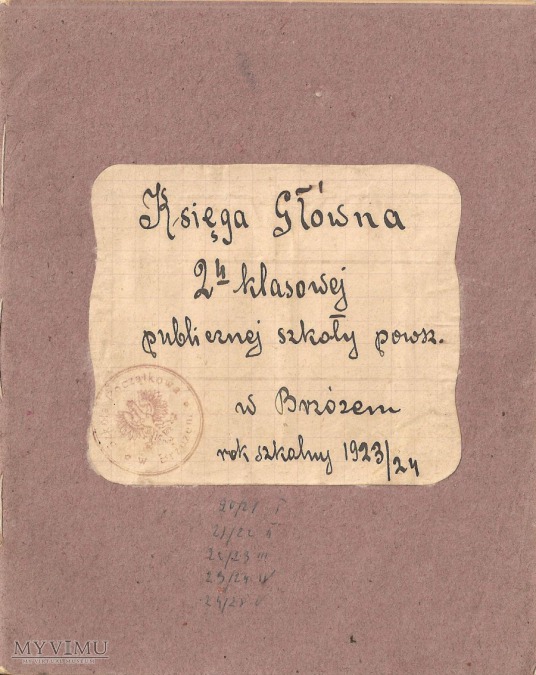 Księga Główna
2ᵏ klasowej
publicznej szkoły powsz.
w Brzózem
rok szkolny 1923/24
20/21 I
21/22 II
22/23 III
23/24 IV
24/25 V
MYVIMU
MY VIRTUAL MUSEUM